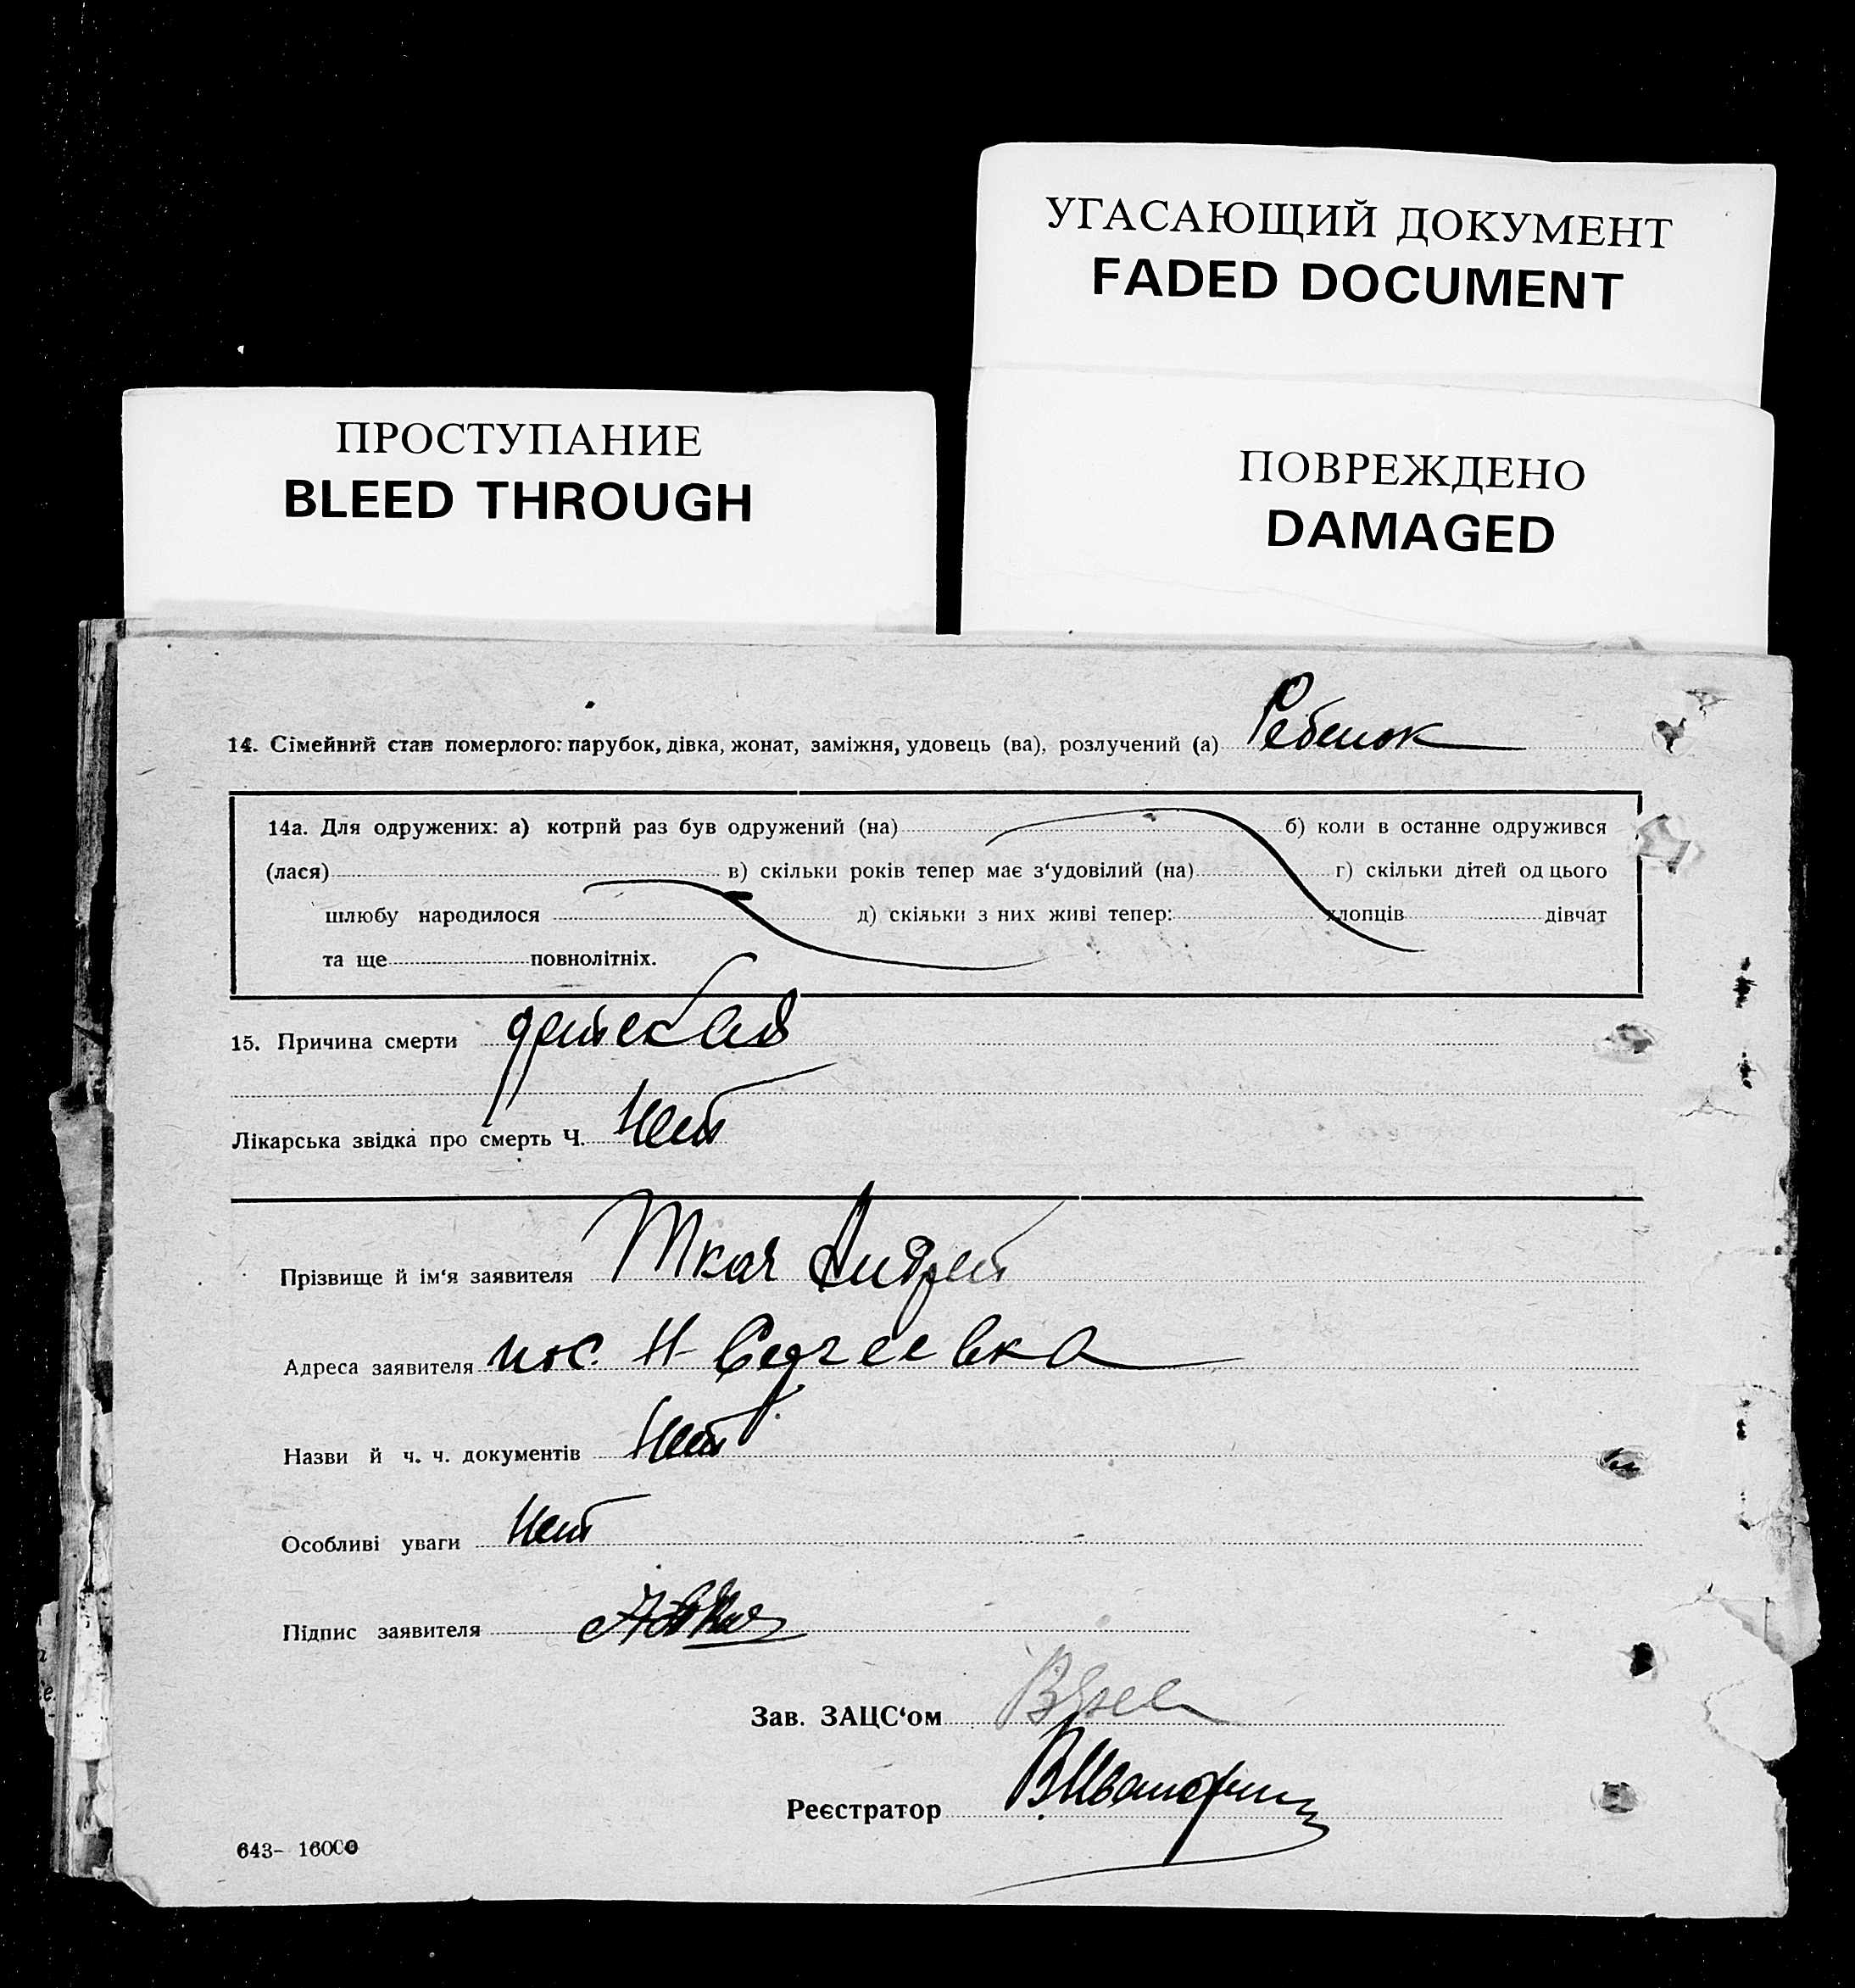 УГАСАЮЩИЙ ДОКУМЕНТ
FADED DOCUMENT
ПРОСТУПАНИЕ
BLEED THROUGH
ПОВРЕЖДЕНО
DAMAGED
14. Сімейний стан померлого: парубок, дівка, жонат, заміжня, удовець (ва), розлучений (а) Ребенок
14а. Для одружених: а) котрий раз був одружений (на) б) коли в останне одружився
(лася) в) скільки років тепер має з‘удовілий (на) г) скільки дітей од цього
шлюбу народилося д) скільки з них живі тепер: хлопців дівчат
та ще повнолітніх.
15. Причина смерти
Лікарська звідка про смерть Ч. Нет
Прізвище й ім‘я заявителя Ткач Андрей
Адреса заявителя пос. Н-Сергеевка
Назви й ч. ч. документів Нет
Особливі уваги Нет
Підпис заявителя
Зав. ЗАЦС‘ом
Реєстратор
643- 16000